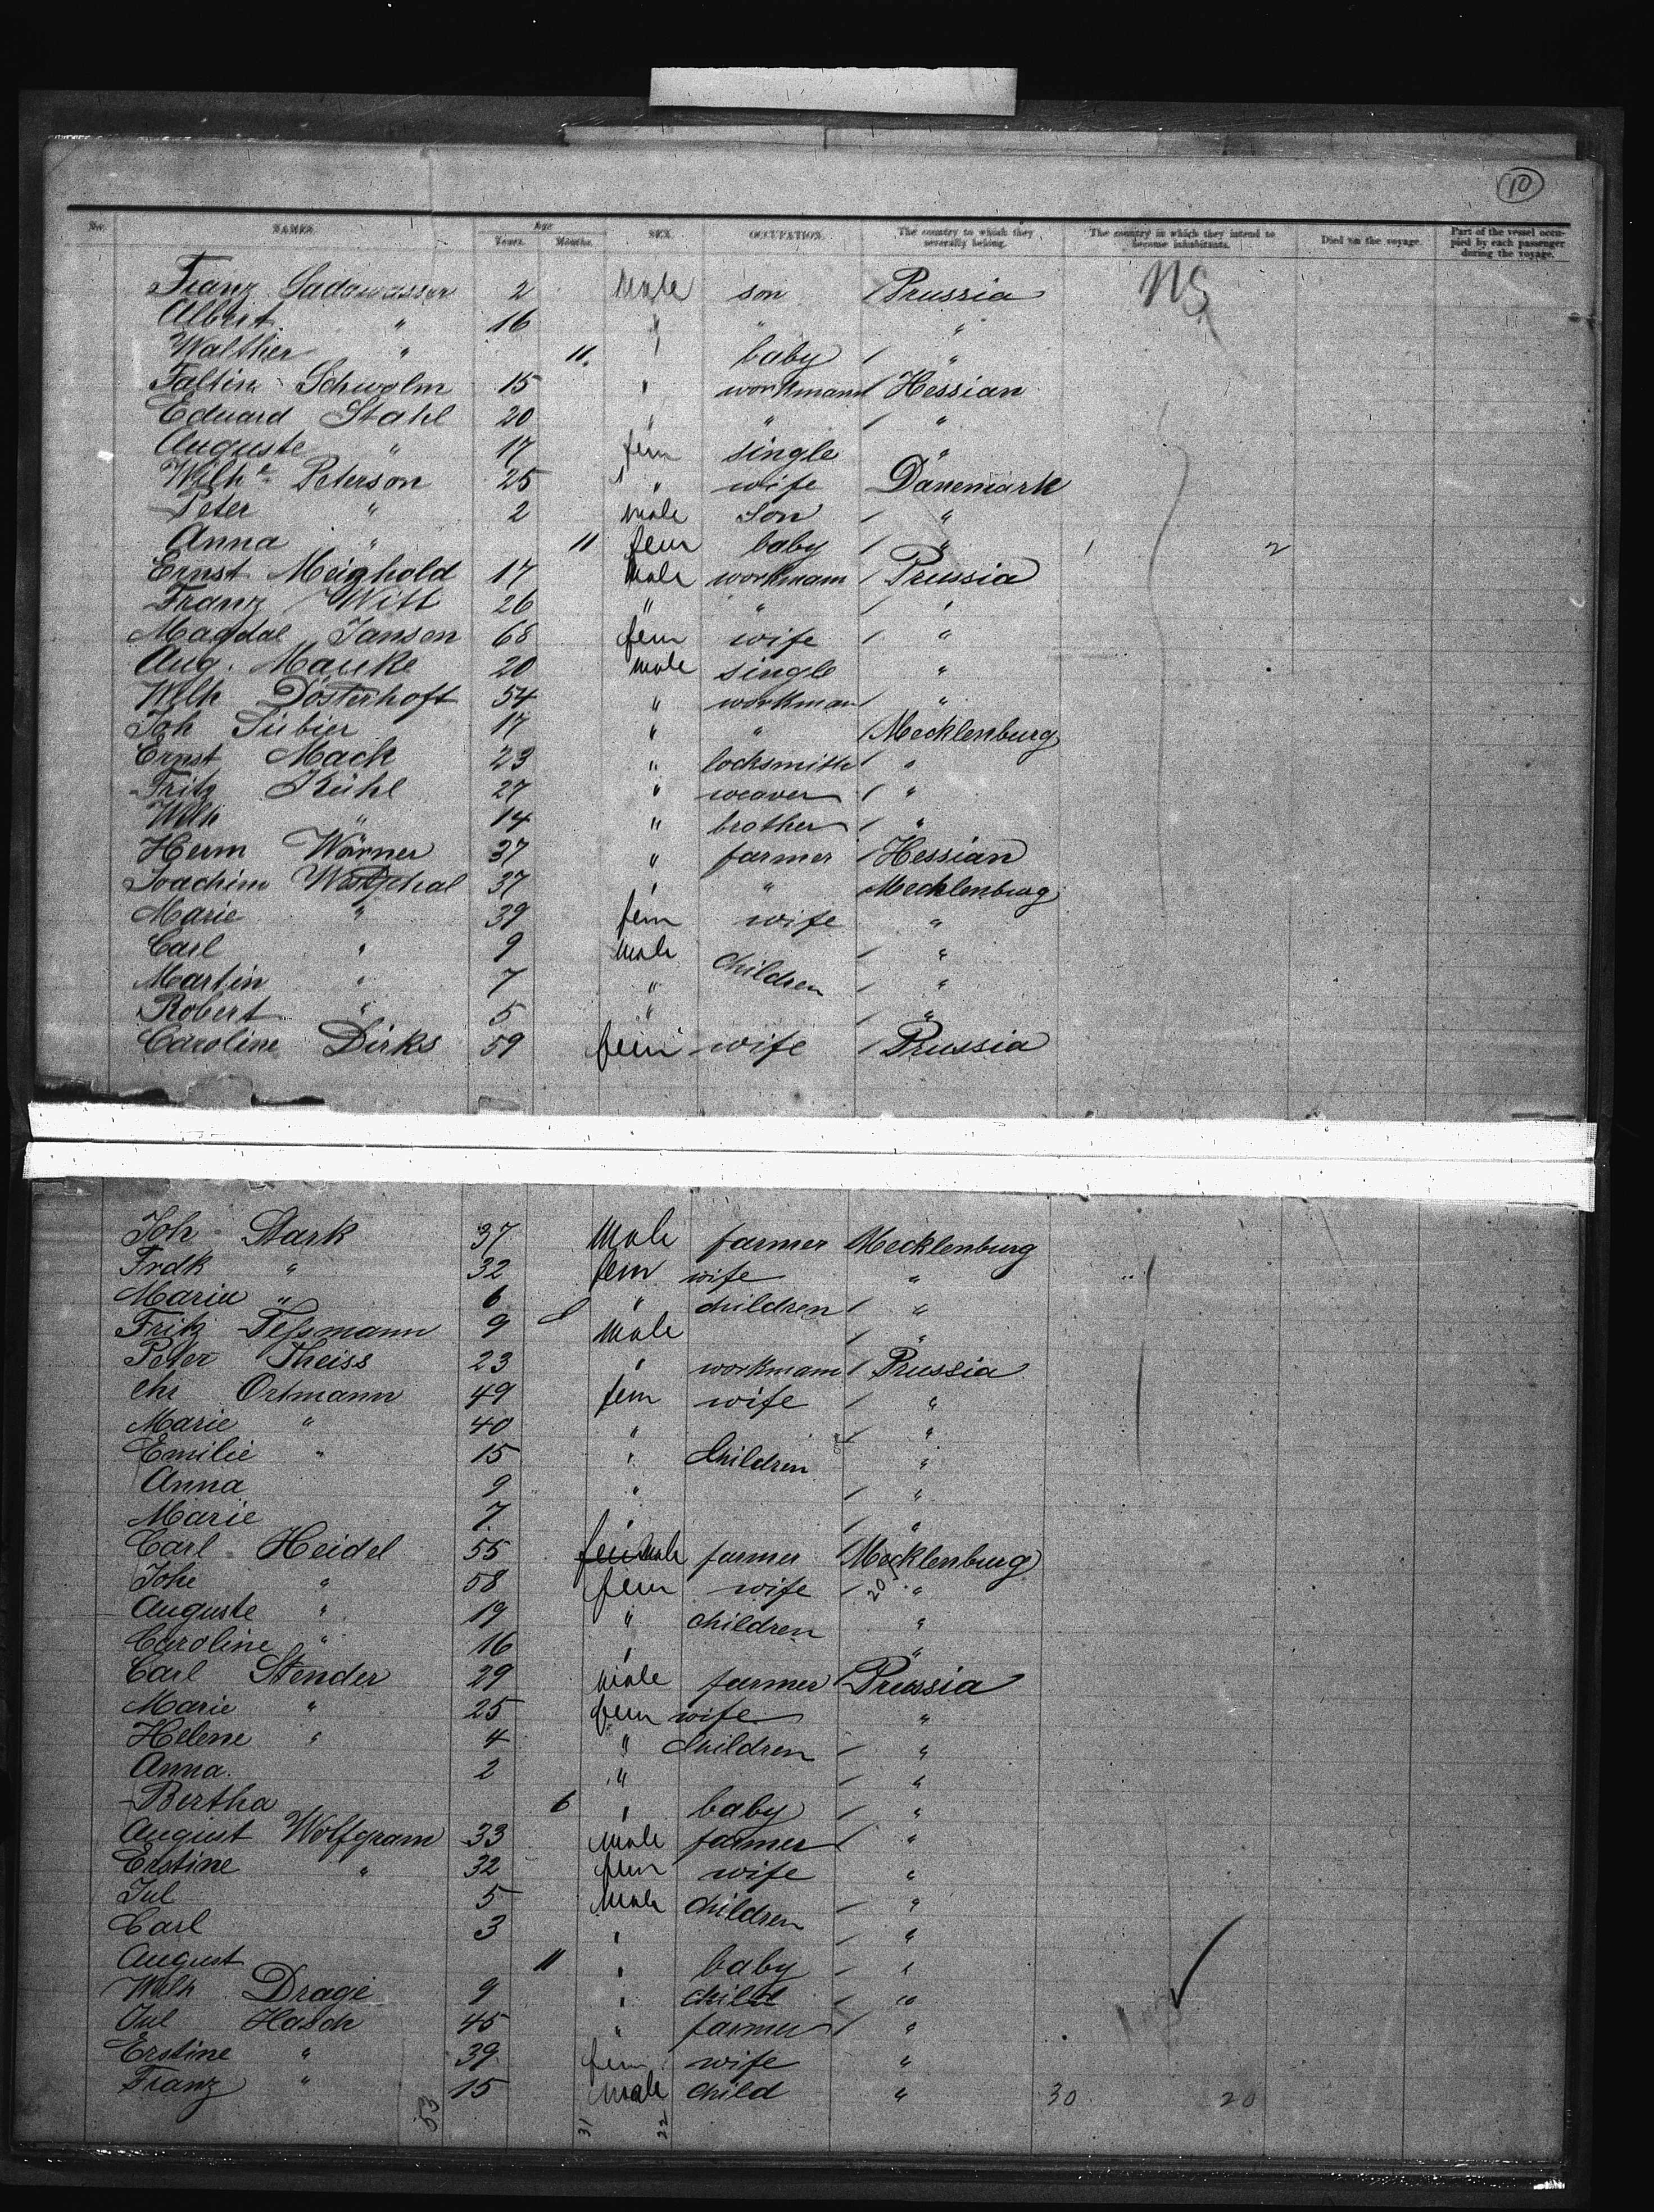 10
No. NAMES. Age Years. Months. SEX. OCCUPATION. The country to which they severally belong. The country in which they intend to become inhabitants. Died on the voyage. Part of the vessel occupied by each passenger during the voyage.
Franz Sadowasser 2 Male son Prussia
Albert " 16 " " "
Walther " 11 " baby "
Faltin Schwolm 15 " workmann Hessian
Eduard Stahl 20 " " "
Auguste " 17 fem single "
Wilhe Peterson 25 " wife Danemark
Peter " 2 male Son "
Anna " 11 fem baby " 1 2
Ernst Meighold 17 Male workmann Prussia
Franz Witt 26 " " "
Magdal Jansen 68 fem wife "
Aug. Mauke 20 male single "
Wilh Dösterhoft 54 " workman "
Joh Siebier 17 " " Mecklenburg
Ernst Mack 23 " locksmith "
Fritz Kühl 27 " weaver "
Wilh " 14 " brother "
Herm Wörner 37 " farmer Hessian
Joachim Westphal 37 " " Mecklenburg
Marie " 39 fem wife "
Carl " 9 male children "
Martin " 7 " "
Robert " 5 " "
Caroline Dirks 59 fem wife Prussia
Joh Stark 37 Male farmer Mecklenburg
Frdk " 32 fem wife "
Maria " 6 " children "
Fritz Teßmann 9 Male "
Peter Theiss 23 " workmann Prussia
Chr Ortmann 49 fem wife "
Marie " 40 " "
Emilie " 15 " Children "
Anna 9 " "
Marie 7 " "
Carl Heidel 55 fem Male farmer Mecklenburg
Johe " 58 fem wife " 20
Auguste " 19 " children "
Caroline " 16 " "
Carl Stender 29 Male farmer Prussia
Marie " 25 fem wife "
Helene " 4 " Children "
Anna. 2 " "
Bertha 6 " baby "
August Wolfgram 33 Male farmer "
Erstine " 32 fem wife "
Jul 5 Male Children "
Carl 3 " "
August 11 " baby "
Wilh Drage 9 " child "
Jul Hasch 45 " farmer "
Erstine " 39 fem wife "
Franz " 15 Male child " 30 20
53 31 22